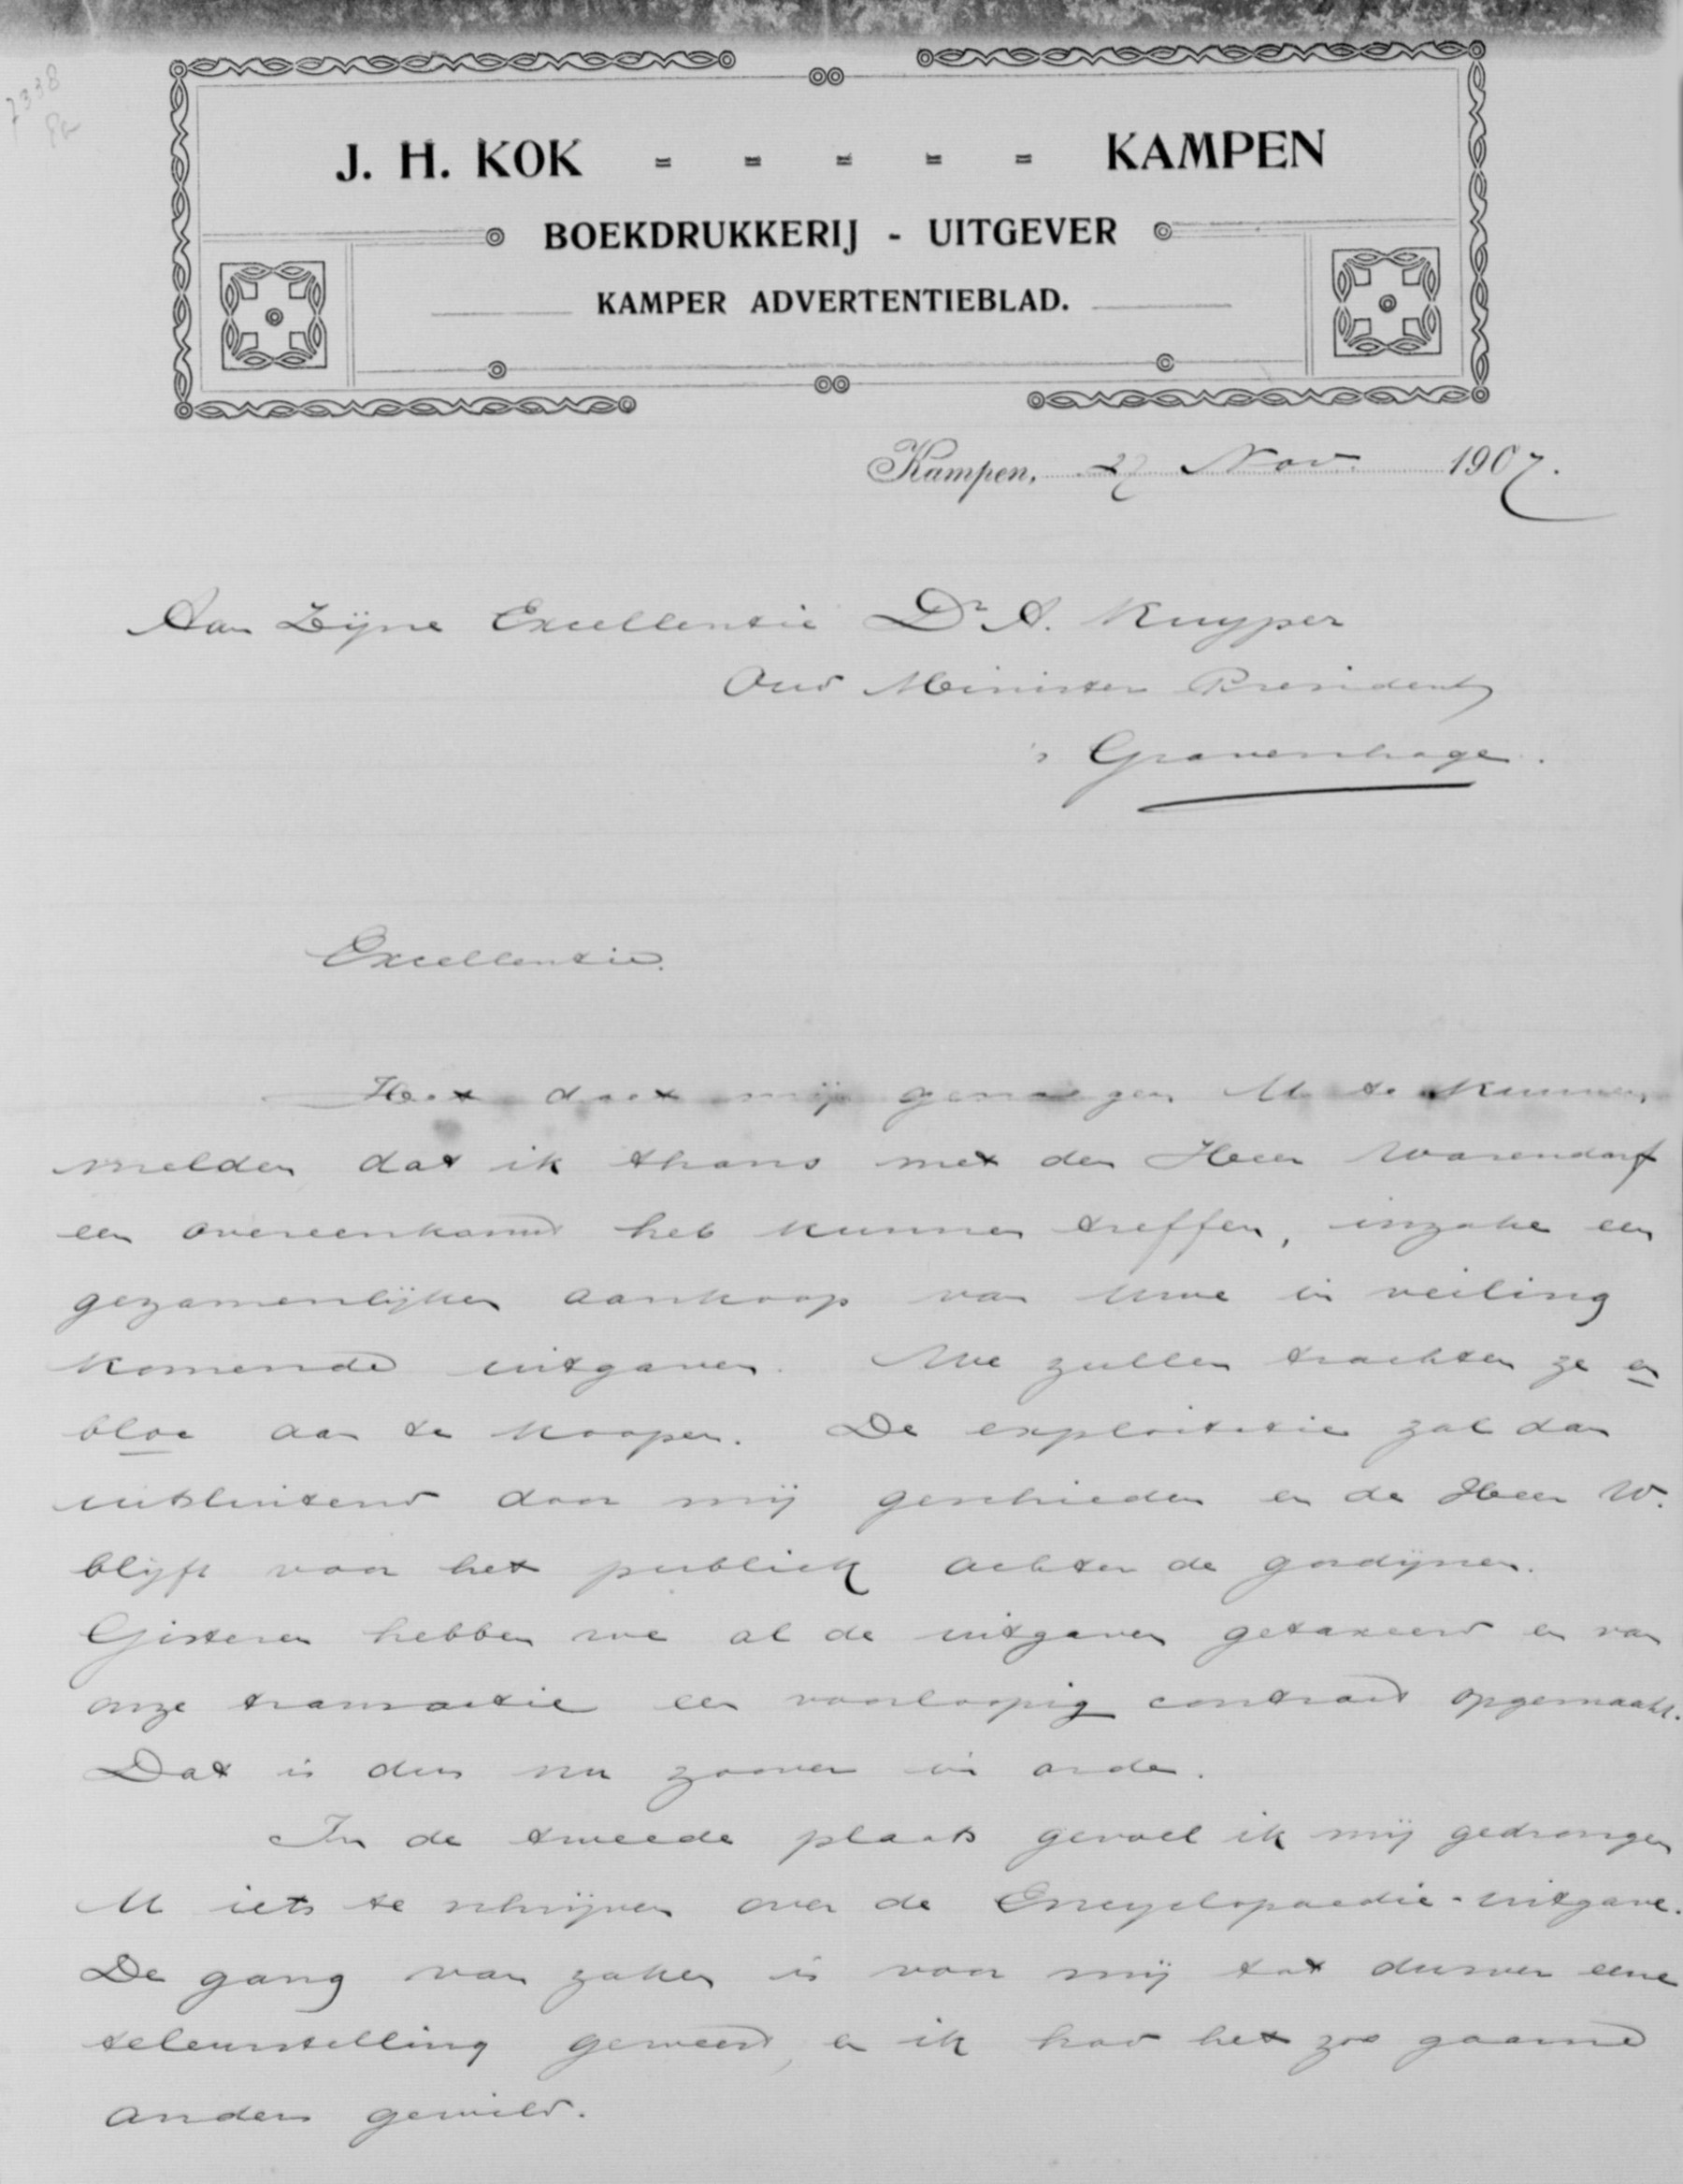 7338
J. H. KOK - - - - - KAMPEN
BOEKDRUKKERIJ - UITGEVER
KAMPER ADVERTENTIEBLAD.
Kampen, 27 Nov. 1907.
Aan Zijne Excellentie Dr A. Kuyper
Oud Minister President
's Gravenhage.
Excellentie.
Het doet mij genoegen U te kunnen
melden dat ik thans met den Heer Warendorf
een overeenkomst heb kunnen treffen, inzake een
gezamenlijken aankoop van Uwe in veiling
komende uitgaven. We zullen trachten ze en
bloc aan te koopen. De exploitatie zal dan
uitsluitend door mij geschieden en de Heer W.
blijft voor het publiek achter de gordijnen.
Gisteren hebben we al de uitgaven getaxeerd en van
onze transactie een voorloopig contract opgemaakt.
Dat is dus nu zoover in orde.
In de tweede plaats gevoel ik mij gedrongen
U iets te schrijven over de Encyclopaedie-uitgave.
De gang van zaken is voor mij tot dusver eene
teleurstelling geweest, en ik had het zoo gaarne
anders gewild.